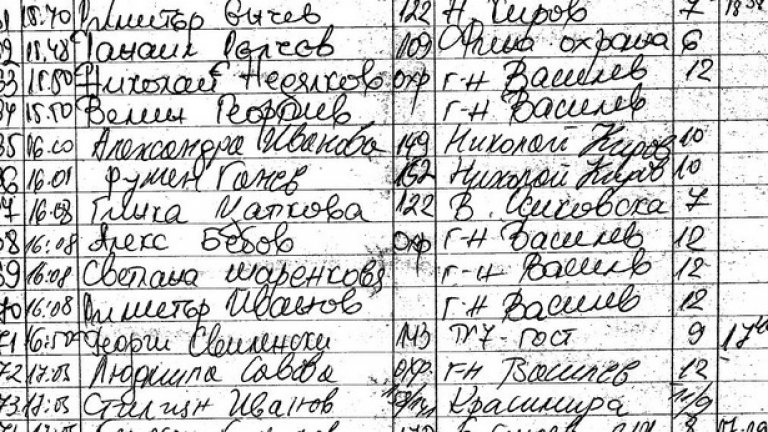 18.40 Димитър Бичев 122 Н. Киров 7
15.48 Панайот Ралчев 109 Фина охрана 6
33 15.50 Николай Недялков охр г-н Василев 12
34 15.50 Велин Георгиев г-н Василев
35 16.00 Александра Иванова 149 Николай Киров 10
36 16.01 Румен Ганев 152 Николай Киров 10
16.08 Гинка Цапкова 122 В. 7
38 16:08 Алекс Бебов охр г-н Василев 12
39 16:08 Светлана Шаренкова г-н Василев 12
16:08 Димитър Иванов г-н Василев 12
16:50 Георги Свиленски 143 П7-гост 9
17:05 Людмила Савова охр. г-н Василев 12
17:05 Стилиян Иванов Красимира